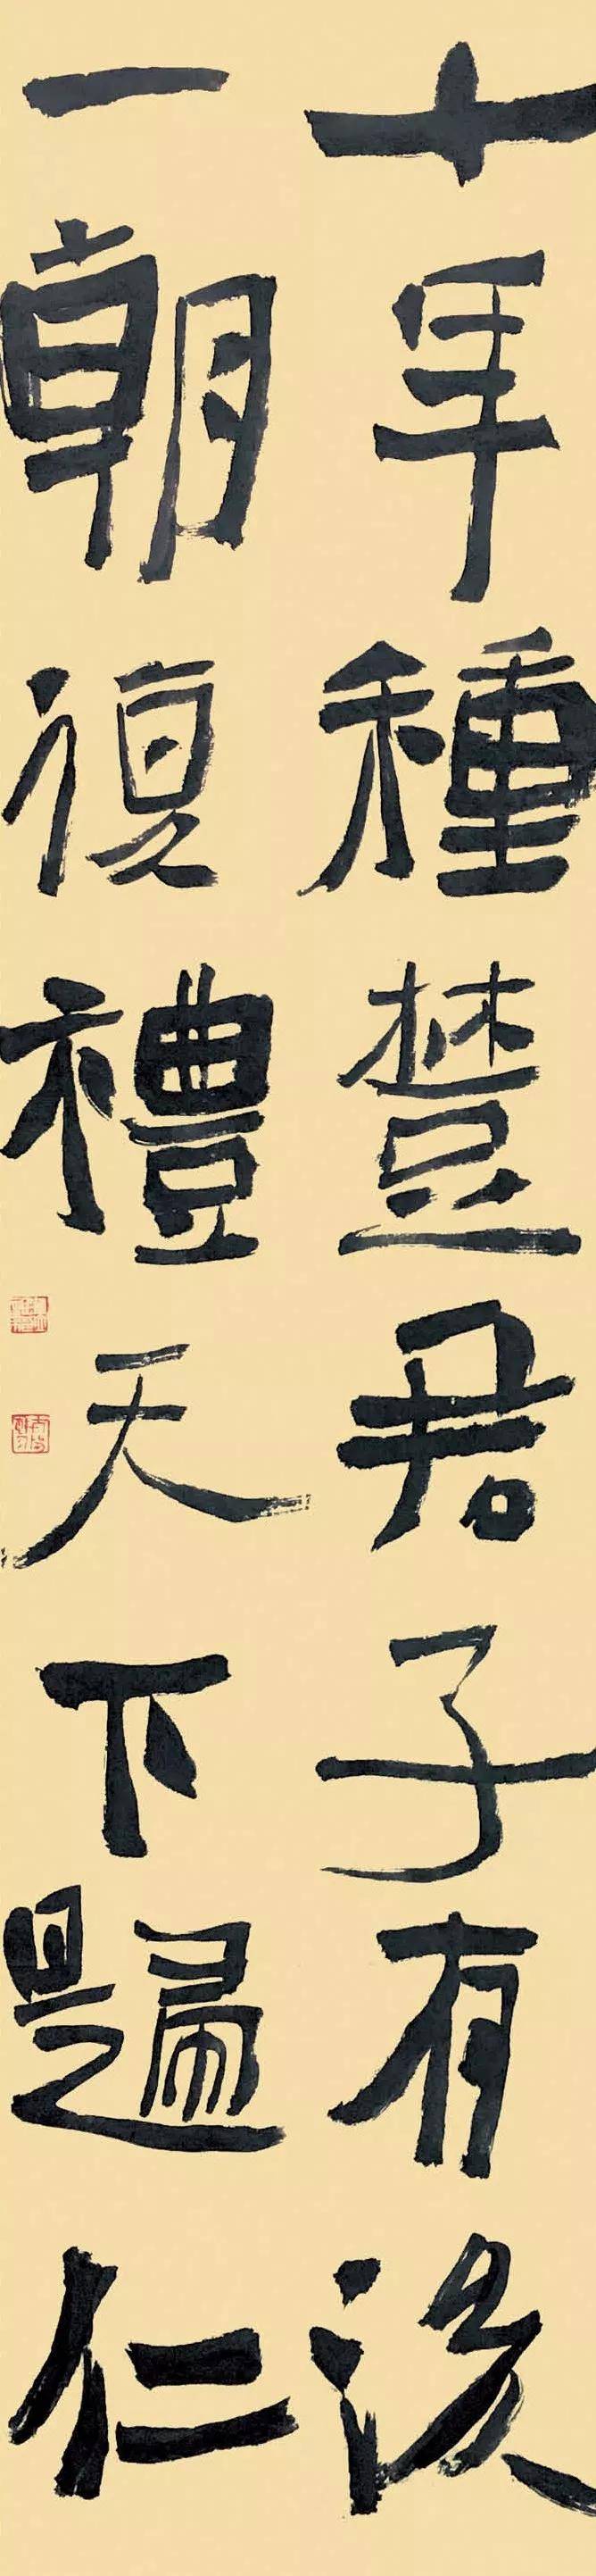 十年種樹君子有後
一朝復禮天下歸仁